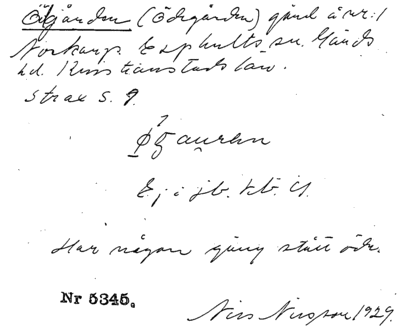 Ödgården (Ödegården) gård å nr: 1
Norkarp. Exphults sn. Gärds
hd. Kristianstads län.
Strax S. 9.
Ej i jb. kb. GS.
Har någon gång stått öde.
Nr 5345.
Nils Nilsson 1929.